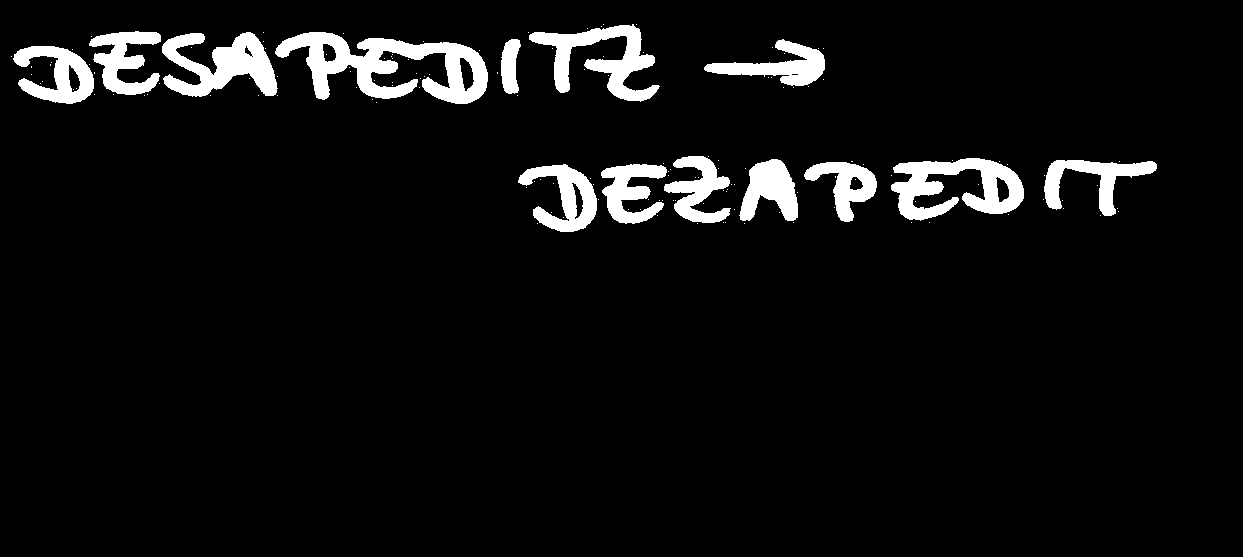 DESAPEDITZ →
DEZAPEDIT